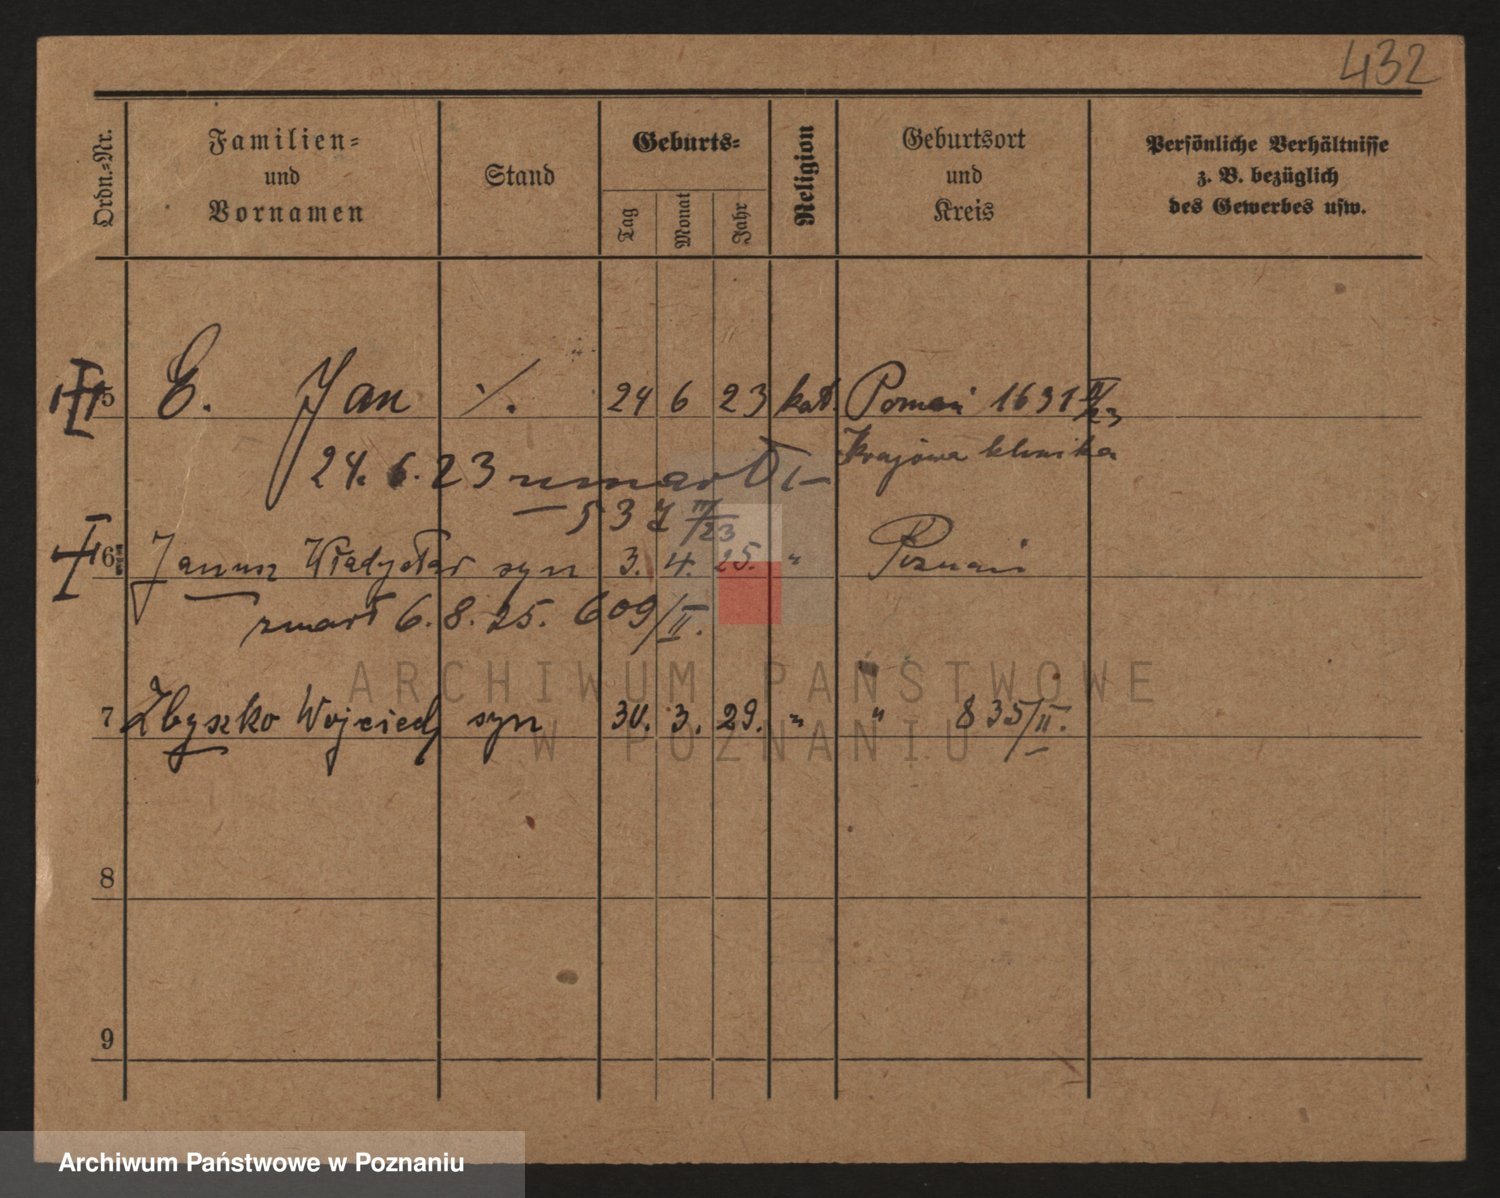 432
Ordn.-Nr.
Familien-
und
Vornamen
Stand
Geburts-
Tag
Monat
Jahr
Religion
Geburtsort
und
Kreis
Persönliche Verhältnisse
z. B. bezüglich
des Gewerbes usw.
5 E. Jan ·/. 24 6 23 kat. Poznań 1631 IV/23
Krajowa klinika
24. 6. 23 umarł
537 III/23
6 Janusz Władysław syn 3. 4. 25. " Poznań
zmarł 6. 8. 25. 609/II.
7 Zbyszko Wojciech syn 30. 3. 29. " " 835/II.
8
9
ARCHIWUM PAŃSTWOWE
W POZNANIU
Archiwum Państwowe w Poznaniu